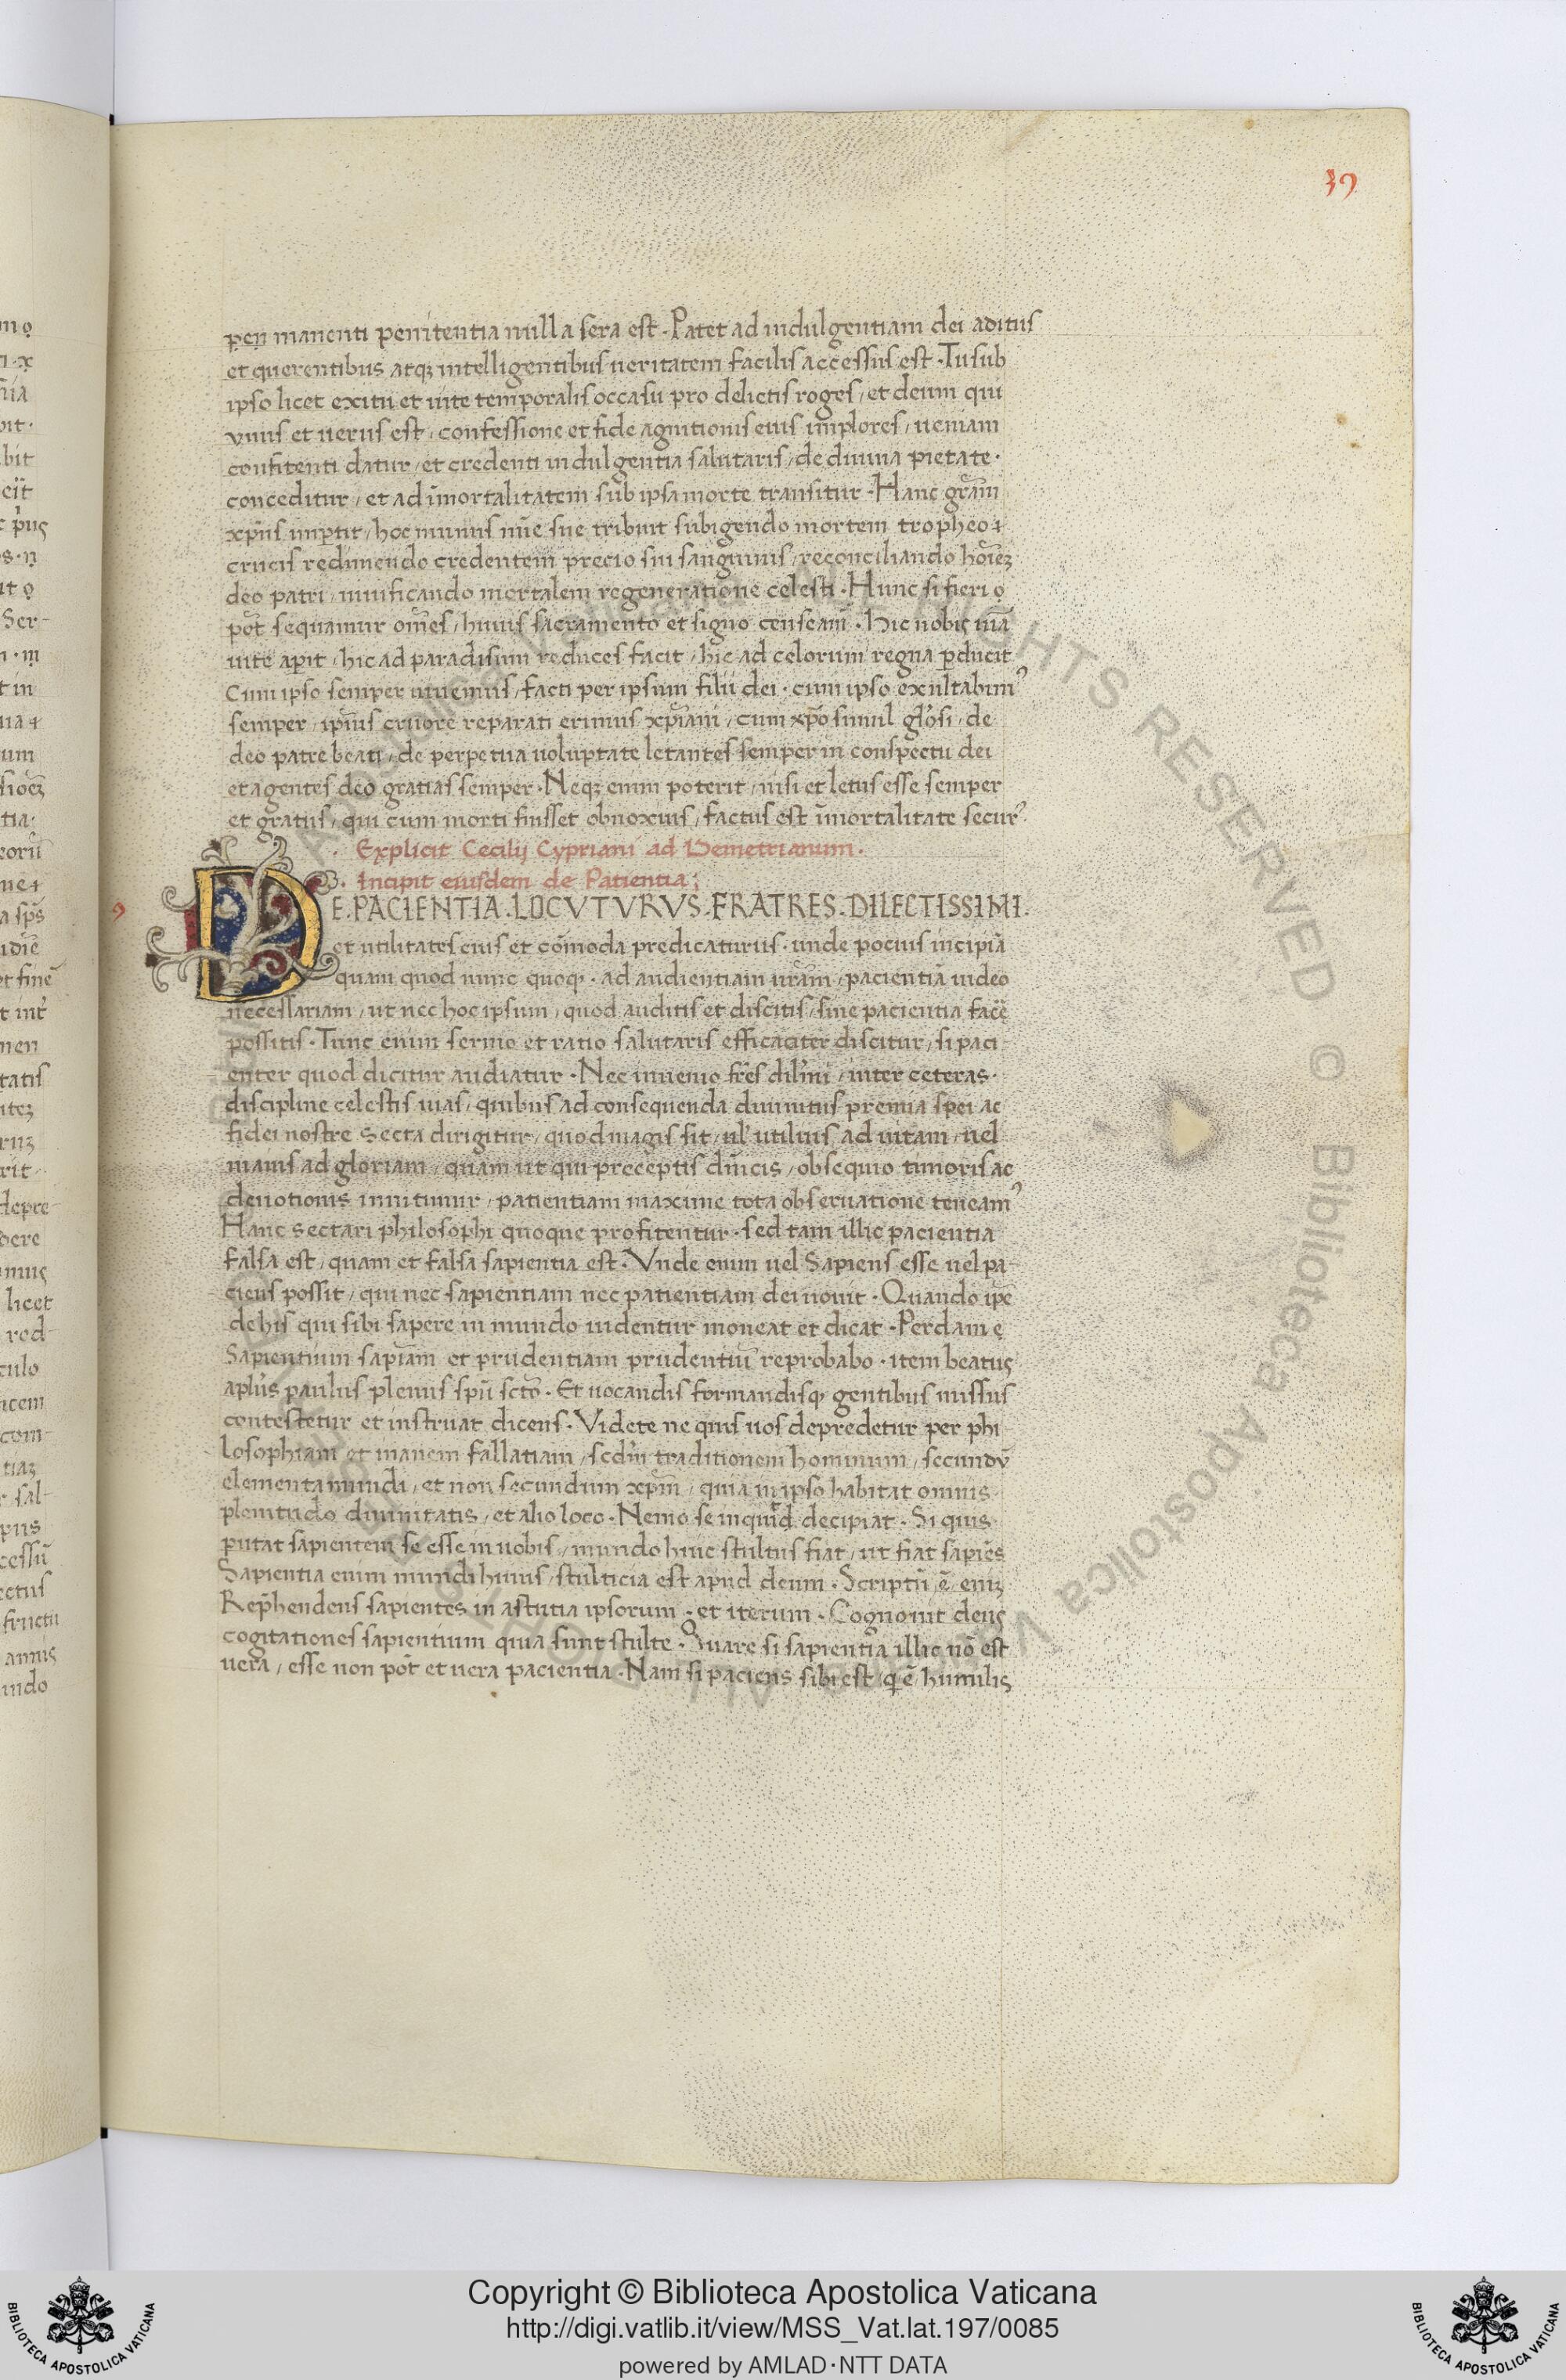 39
pen manenti penitentia nulla sera est · Patet ad indulgentiam dei aditus
et querentibus atqꝫ intelligentibus ueritatem facilis accessus est · Tu sub
ipso licet exitu et uite temporalis occasu pro delictis roges / et deum qui
vnus et uerus est / confessione et fide agnitionis eius implores / ueniam
confitenti datur / et credenti indulgentia salutaris / de diuina pietate ·
conceditur / et ad īmortalitatem sub ipsa morte transitur · Hanc gr̄am
xp̄us imꝑtit / hoc munus mīe sue tribuit subigendo mortem tropheo
crucis redimendo credentem precio sui sanguinis / reconciliando hoīeꝫ
deo patri / uiuificando mortalem regeneratione celesti · Hunc si fieri
pōt sequamur om̄es / huius sacramento et signo censeam̄ · Hic nobis uiā
uite aꝑit / hic ad paradisum reduces facit / hic ad celorum regna ꝑducit
Cum ipso semper uiuemus / facti per ipsum filii dei · cum ipso exultabimꝰ
semper / ip̄ius cruore reparati erimus xp̄iani / cum xp̄o simul gl'osi / de
deo patre beati / de perpetua uoluptate letantes semper in conspectu dei
et agentes deo gratias semper · Neqꝫ enim poterit / nisi et letus esse semper
et gratus / qui cum morti fuisset obnoxius / factus est īmortalitate securꝰ
· Explicit Cecilij Cypriani ad Demetrianum ·
· Incipit eiusdem de Patientia ;
DE · PACIENTIA · LOCVTVRVS · FRATRES · DILECTISSIMI ·
et utilitates eius et cōmoda predicaturus · unde pocius incipiā
quam quod nunc quoqꝫ · ad audientiam ur̄am / pacientiā uideo
necessariam / ut nec hoc ipsum / quod auditis et discitis / sine pacientia facē
possitis · Tunc enim sermo et ratio salutaris efficaciter discitur / si paci-
enter quod dicitur audiatur · Nec inuenio fr̄es dil'mi / inter ceteras ·
discipline celestis uias / quibus ad consequenda diuinitus premia spei ac
fidei nostre secta dirigitur / quod magis sit / ul' utilius ad uitam / uel
maius ad gloriam / quam ut qui preceptis dn̄icis / obsequio timoris ac
deuotionis innitimur / patientiam maxime tota obseruatione teneamꝰ
Hanc sectari philosophi quoque profitentur · sed tam illic pacientia
falsa est / quam et falsa sapientia est · Vnde enim uel Sapiens esse uel pa-
ciens possit / qui nec sapientiam nec patientiam dei nouit · Quando ip̄e
de his qui sibi sapere in mundo uidentur moneat et dicat · Perdam
Sapientium sapiam̄ et prudentiam prudentiū reprobabo · item beatus
apl'us paulus plenus sp̄u sc̄to · Et uocandis formandisqꝫ gentibus missus
contestetur et instruat dicens · Videte ne quis uos depredetur per phi-
losophiam et inanem fallatiam / sed'm traditionem hominum / secundū
elementa mundi / et non secundum xp̄m / quia in ipso habitat omnis
plenitudo diuinitatis / et alio loco · Nemo se inquid decipiat · Si quis
putat sapientem se esse in uobis / mundo huic stultus fiat / ut fiat sapiēs
Sapientia enim mundi huius / stulticia est apud deum · Scriptū ē eniꝫ
Rep̄hendens sapientes in astutia ipsorum · et iterum · Cognouit deus
cogitationes sapientium quia sunt stulte · Quare si sapientia illic nō est
uera / esse non pōt et uera pacientia · Nam si paciens sibi est / q̄ ē humilis
Copyright © Biblioteca Apostolica Vaticana
http://digi.vatlib.it/view/MSS_Vat.lat.197/0085
powered by AMLAD·NTT DATA
BIBLIOTECA APOSTOLICA VATICANA
BIBLIOTECA APOSTOLICA VATICANA